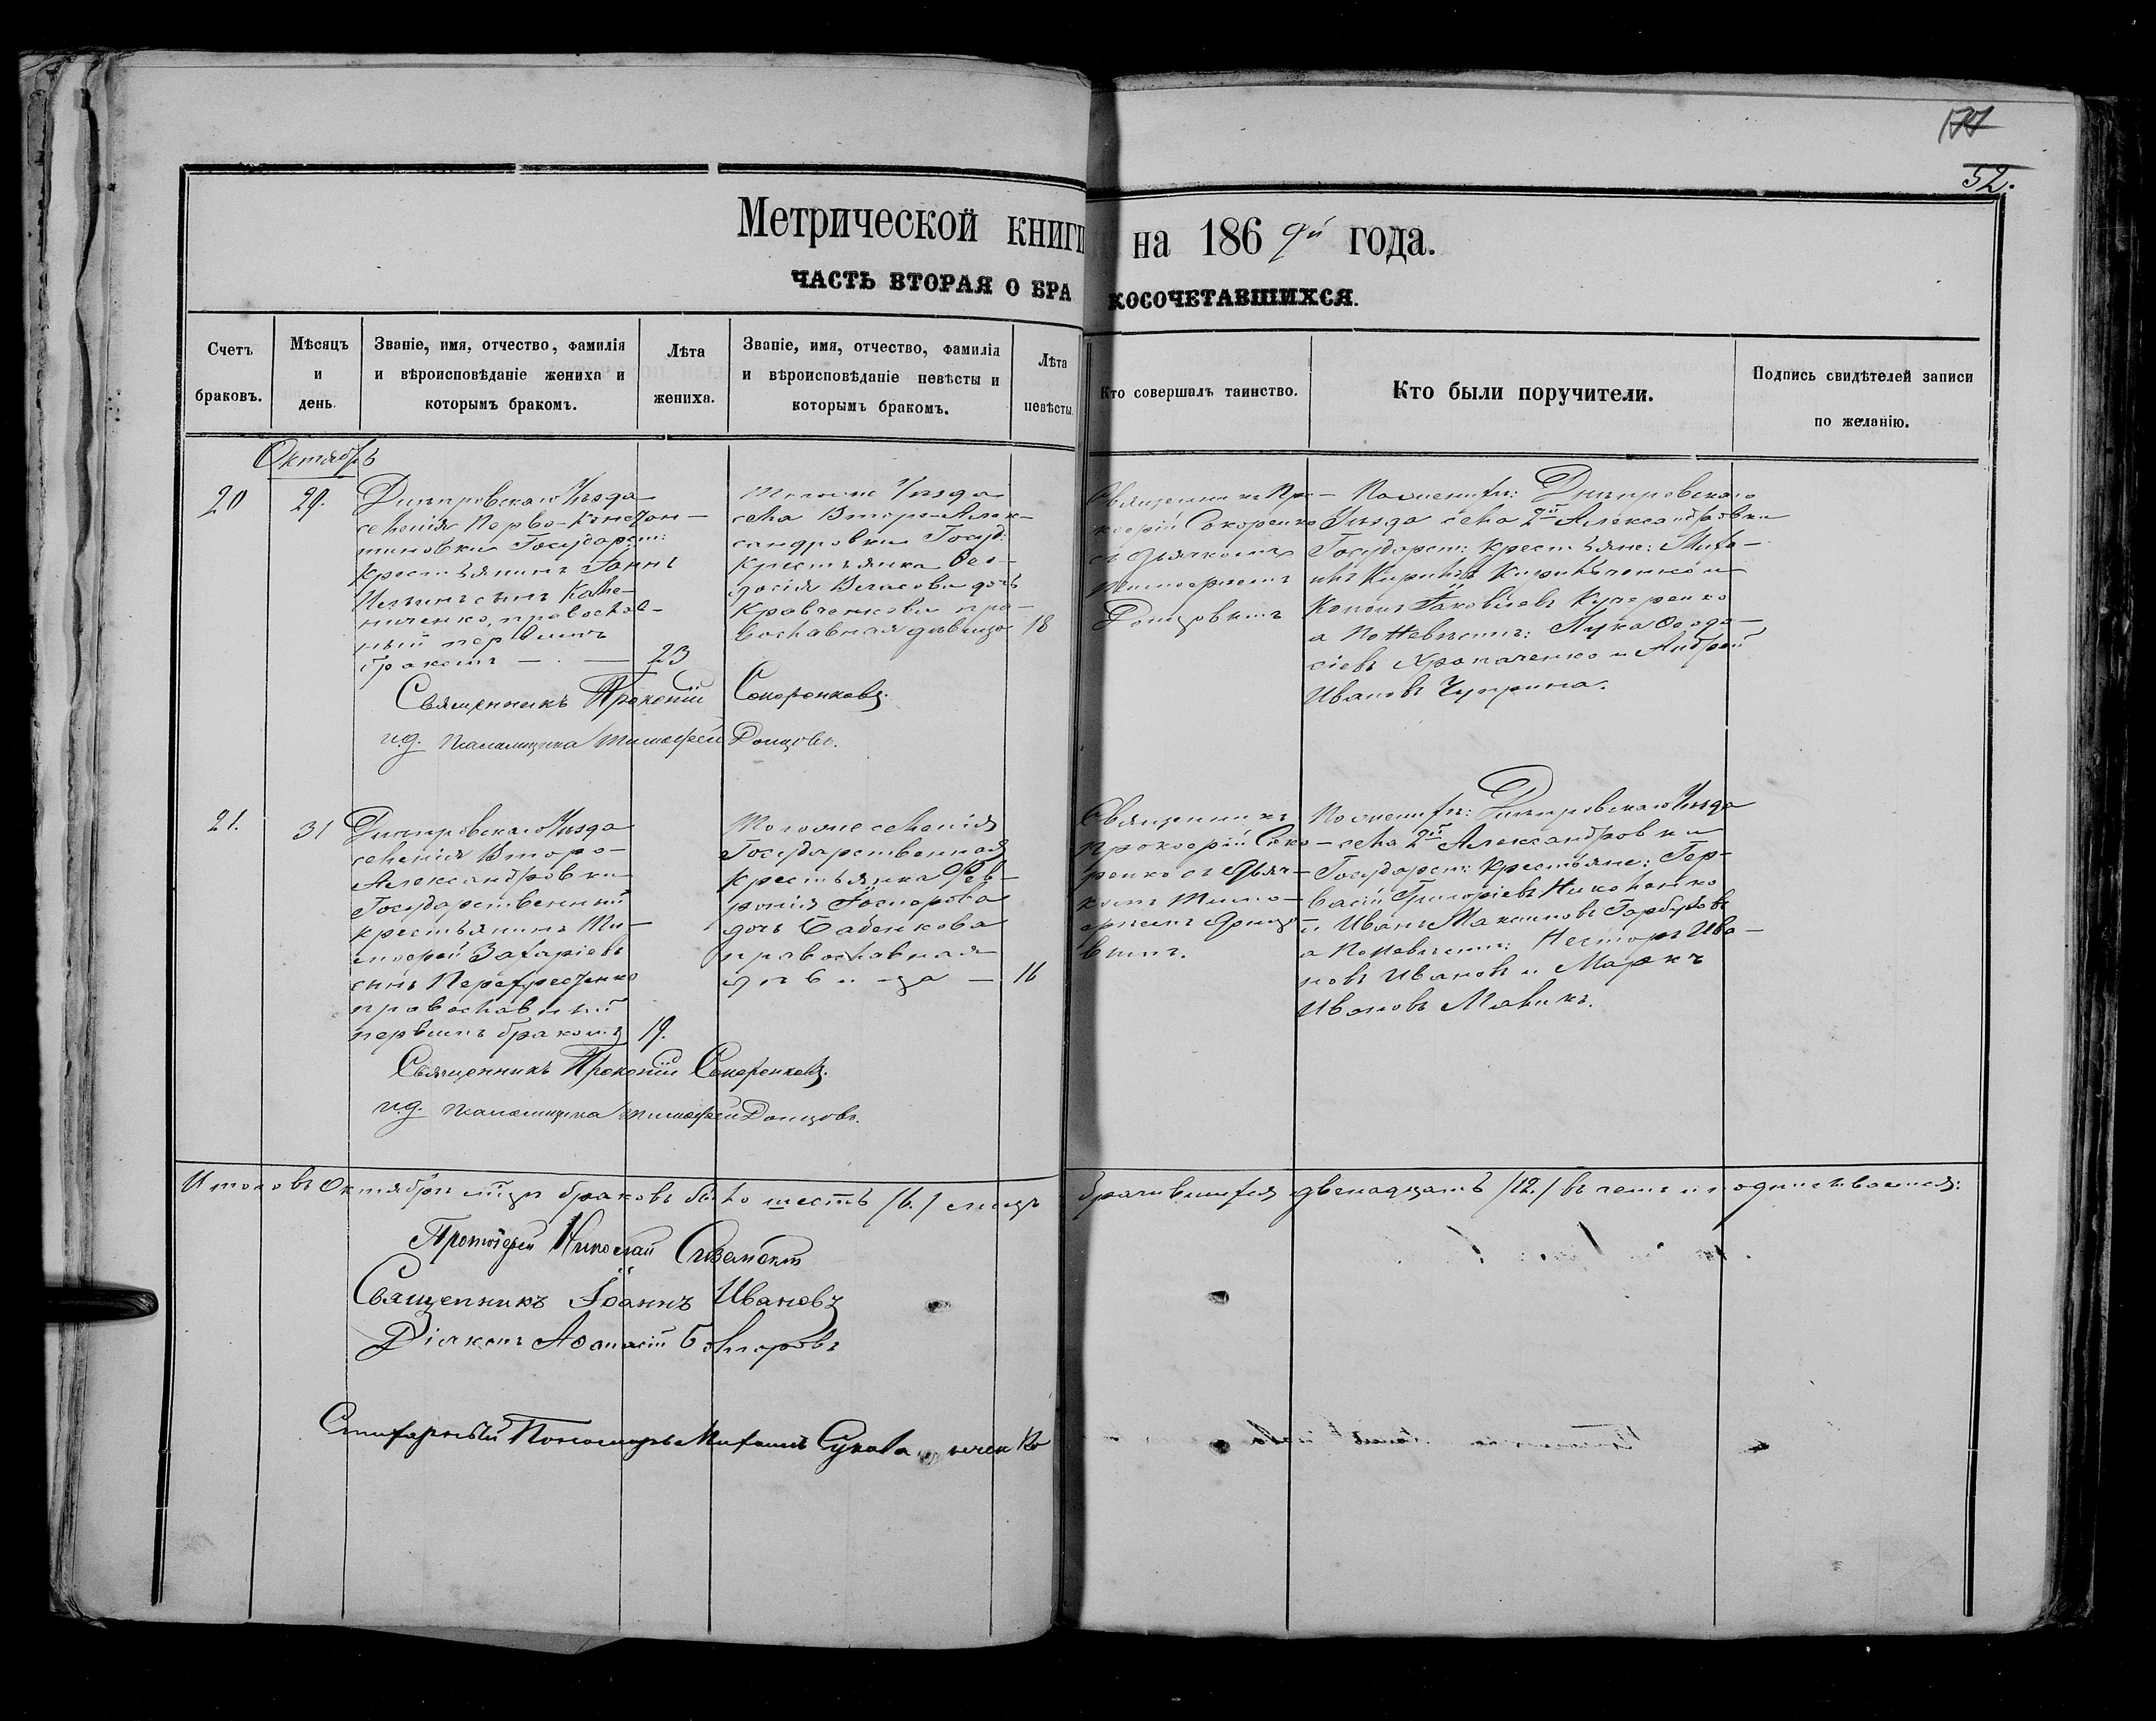 177
52.
Метрической книги на 186 9й года.
ЧАСТЬ ВТОРАЯ О БРАКОСОЧЕТАВШИХСЯ.
Счетъ браковъ.
Мѣсяцъ и день.
Званіе, имя, отчество, фамилія и вѣроисповѣданіе жениха и которымъ бракомъ.
Лѣта жениха.
Званіе, имя, отчество, фамилія и вѣроисповѣданіе невѣсты и которымъ бракомъ.
Лѣта невѣсты.
Кто совершалъ таинство.
Кто были поручители.
Подпись свидѣтелей записи по желанію.
Октябрь
20
29.
Днѣпровскаго Уѣзда
селенія Перво-Констан-
тиновки Государст:
крестьянинъ Іоаннъ
сынъ Кали-
ниченко, православ-
ный первымъ
бракомъ — . — 23
Тогоже Уѣзда
села Второ-Алек-
сандровки Госуд:
крестьянка Ѳео-
досія Власова дочь
Кравченкова пра-
вославная дѣвица 18
Священникъ Про-
кофій Сокоренко
съ дьячкомъ
Тимофѣемъ
Донцовымъ
По женихѣ: Днѣпровскаго
Уѣзда села 2й Александровки
Государст: крестьяне: Миха-
илъ Кириловъ Кириличенко и
Кононъ Яковлевъ Кучеренко
а По невѣстѣ: Лука Ѳеодо-
сіевъ Хропаченко и Андрей
Ивановъ Чуприна.
Священникъ Прокопій Сокоренковъ.
и.д. псаломщика Тимофей Донцовъ.
21.
31
Днѣпровскаго Уѣзда
селенія Второ-
Александровки
Государственный
крестьянинъ Ти-
мофей Захаріевъ
сынъ Перехрестенко
православный
первымъ бракомъ 19.
Тогоже селенія
Государственная
крестьянка Фев-
ронія
дочь Бабенкова
православная
дѣвица — 16
Священникъ
Прокофій Соко-
ренко съ дьяч-
комъ Тимо-
фѣемъ Донцо-
вымъ.
По женихѣ: Днѣпровскаго Уѣзда
села 2й Александровки
Государст: крестьяне: Гер-
васій Григоріевъ Николенко
и Иванъ Максимовъ Гарбузовъ
а По невѣстѣ: Несторъ Ива-
новъ Ивановъ и Маркъ
Ивановъ
Священникъ Прокопій Сокоренковъ.
и.д. псаломщика Тимофей Донцовъ.
Итого въ Октябрѣ мцѣ браковъ было шесть /6./ лицъ брачившихся двенадцать /12./ въ чемъ и подписываемся:
Протоіерей Николай
Священникъ Іоаннъ Ивановъ
Діаконъ Аѳанасій
Пономарь Михаилъ